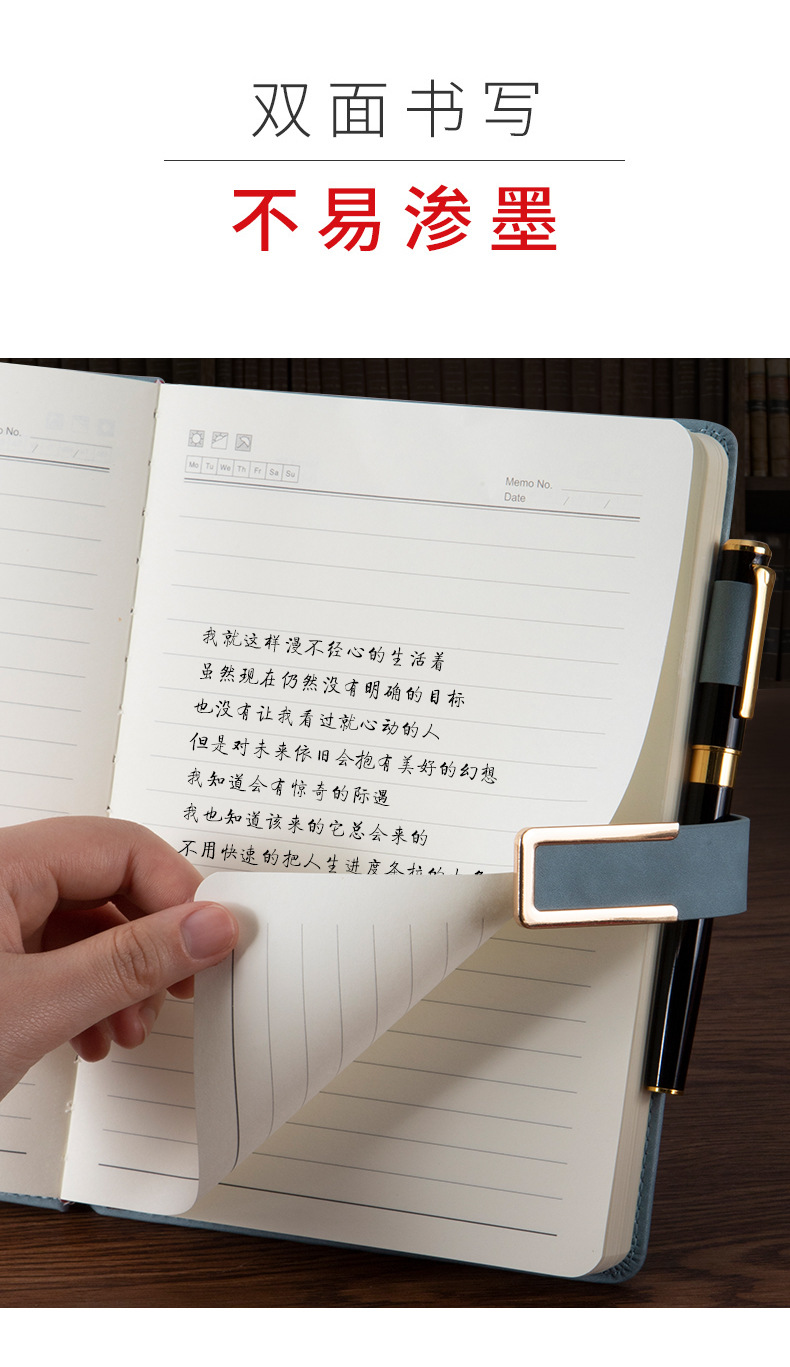 双面书写
不易渗墨
No.
Mo Tu We Th Fr Sa Su
Memo No.
Date / /
我就这样漫不经心的生活着
虽然现在仍然没有明确的目标
也没有让我看过就心动的人
但是对未来依旧会抱有美好的幻想
我知道会有惊奇的际遇
我也知道该来的它总会来的
不用快速的把人生进度条拉的